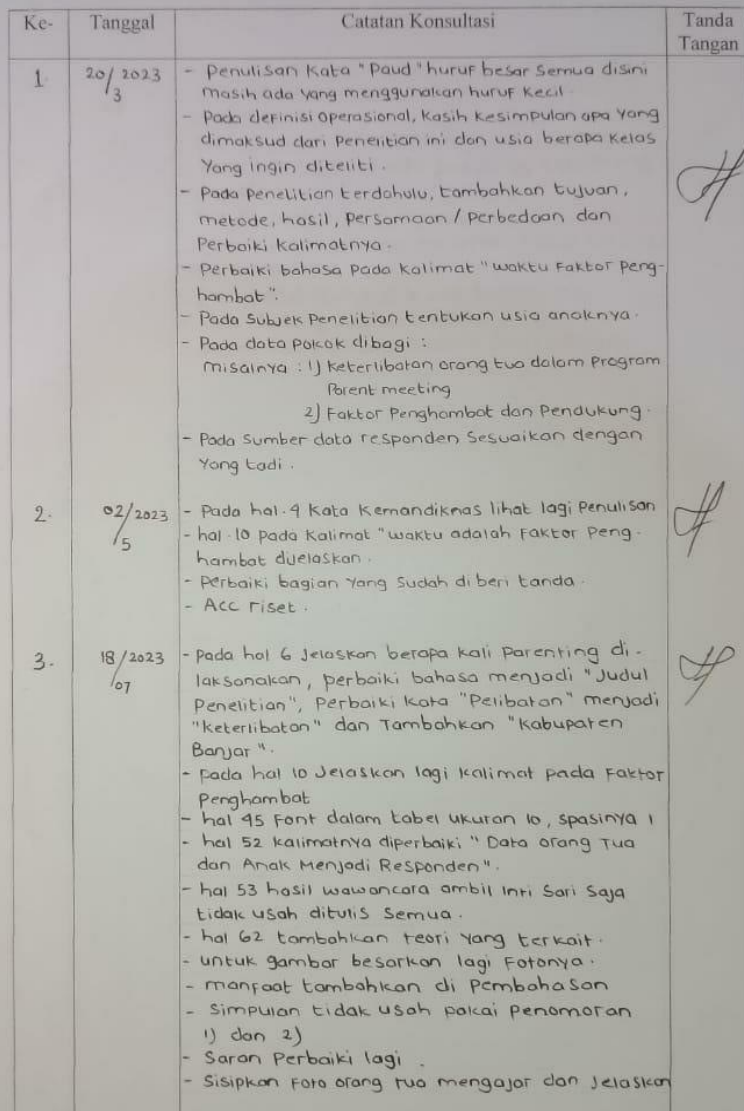 Ke- Tanggal Catatan Konsultasi Tanda Tangan
1. 20/3 2023 - Penulisan kata "Paud" huruf besar semua disini
masih ada yang menggunakan huruf kecil.
- Pada definisi operasional, kasih kesimpulan apa yang
dimaksud dari penelitian ini dan usia berapa kelas
yang ingin diteliti.
- Pada penelitian terdahulu, tambahkan tujuan,
metode, hasil, persamaan / perbedaan dan
Perbaiki kalimatnya.
- Perbaiki bahasa pada kalimat "waktu faktor peng-
hambat".
- Pada Subjek penelitian tentukan usia anaknya.
- Pada data pokok dibagi :
misalnya : 1) keterlibatan orang tua dalam Program
Parent meeting
2) Faktor Penghambat dan Pendukung.
- Pada Sumber data responden Sesuaikan dengan
yang tadi.
2. 02/5 2023 - Pada hal. 9 kata Kemandiknas lihat lagi Penulisan
- hal. 10 pada kalimat "waktu adalah faktor Peng-
hambat dijelaskan.
- Perbaiki bagian yang sudah di beri tanda.
- Acc riset.
3. 18/07 2023 - pada hal 6 Jelaskan berapa kali parenting di-
laksanakan, perbaiki bahasa menjadi "Judul
Penelitian", Perbaiki kata "Pelibatan" menjadi
"keterlibatan" dan Tambahkan "Kabupaten
Banjar".
- Pada hal 10 Jelaskan lagi kalimat pada Faktor
Penghambat
- hal 45 Font dalam tabel ukuran 10, spasinya 1
- hal 52 kalimatnya diperbaiki "Data orang Tua
dan Anak Menjadi Responden".
- hal 53 hasil wawancara ambil inti Sari Saja
tidak usah ditulis semua.
- hal 62 tambahkan teori yang terkait.
- untuk gambar besarkan lagi Fotonya.
- manfaat tambahkan di Pembahasan
- Simpulan tidak usah pakai Penomoran
1) dan 2)
- Saran Perbaiki lagi.
- Sisipkan Foto orang tua mengajar dan Jelaskan